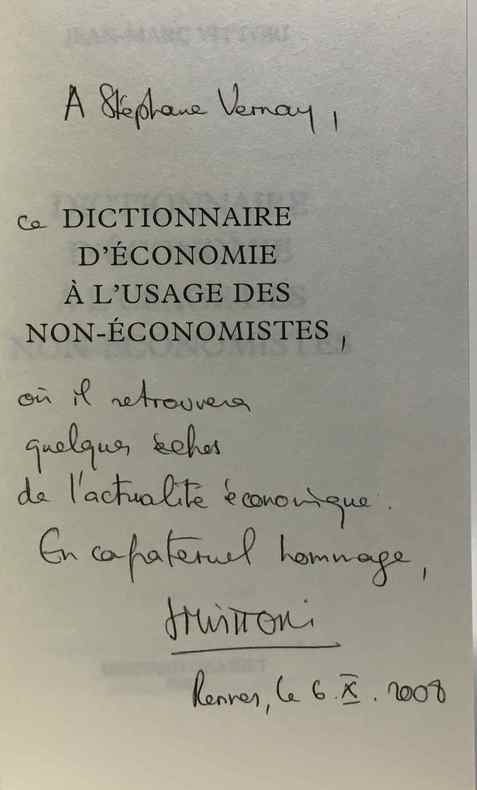 A Stéphane Vernay,
ce DICTIONNAIRE
D'ÉCONOMIE
À L'USAGE DES
NON-ÉCONOMISTES,
où il retrouvera
quelques échos
de l'actualité économique.
En hommage,
JMVITTORI
Rennes, le 6.X.2008